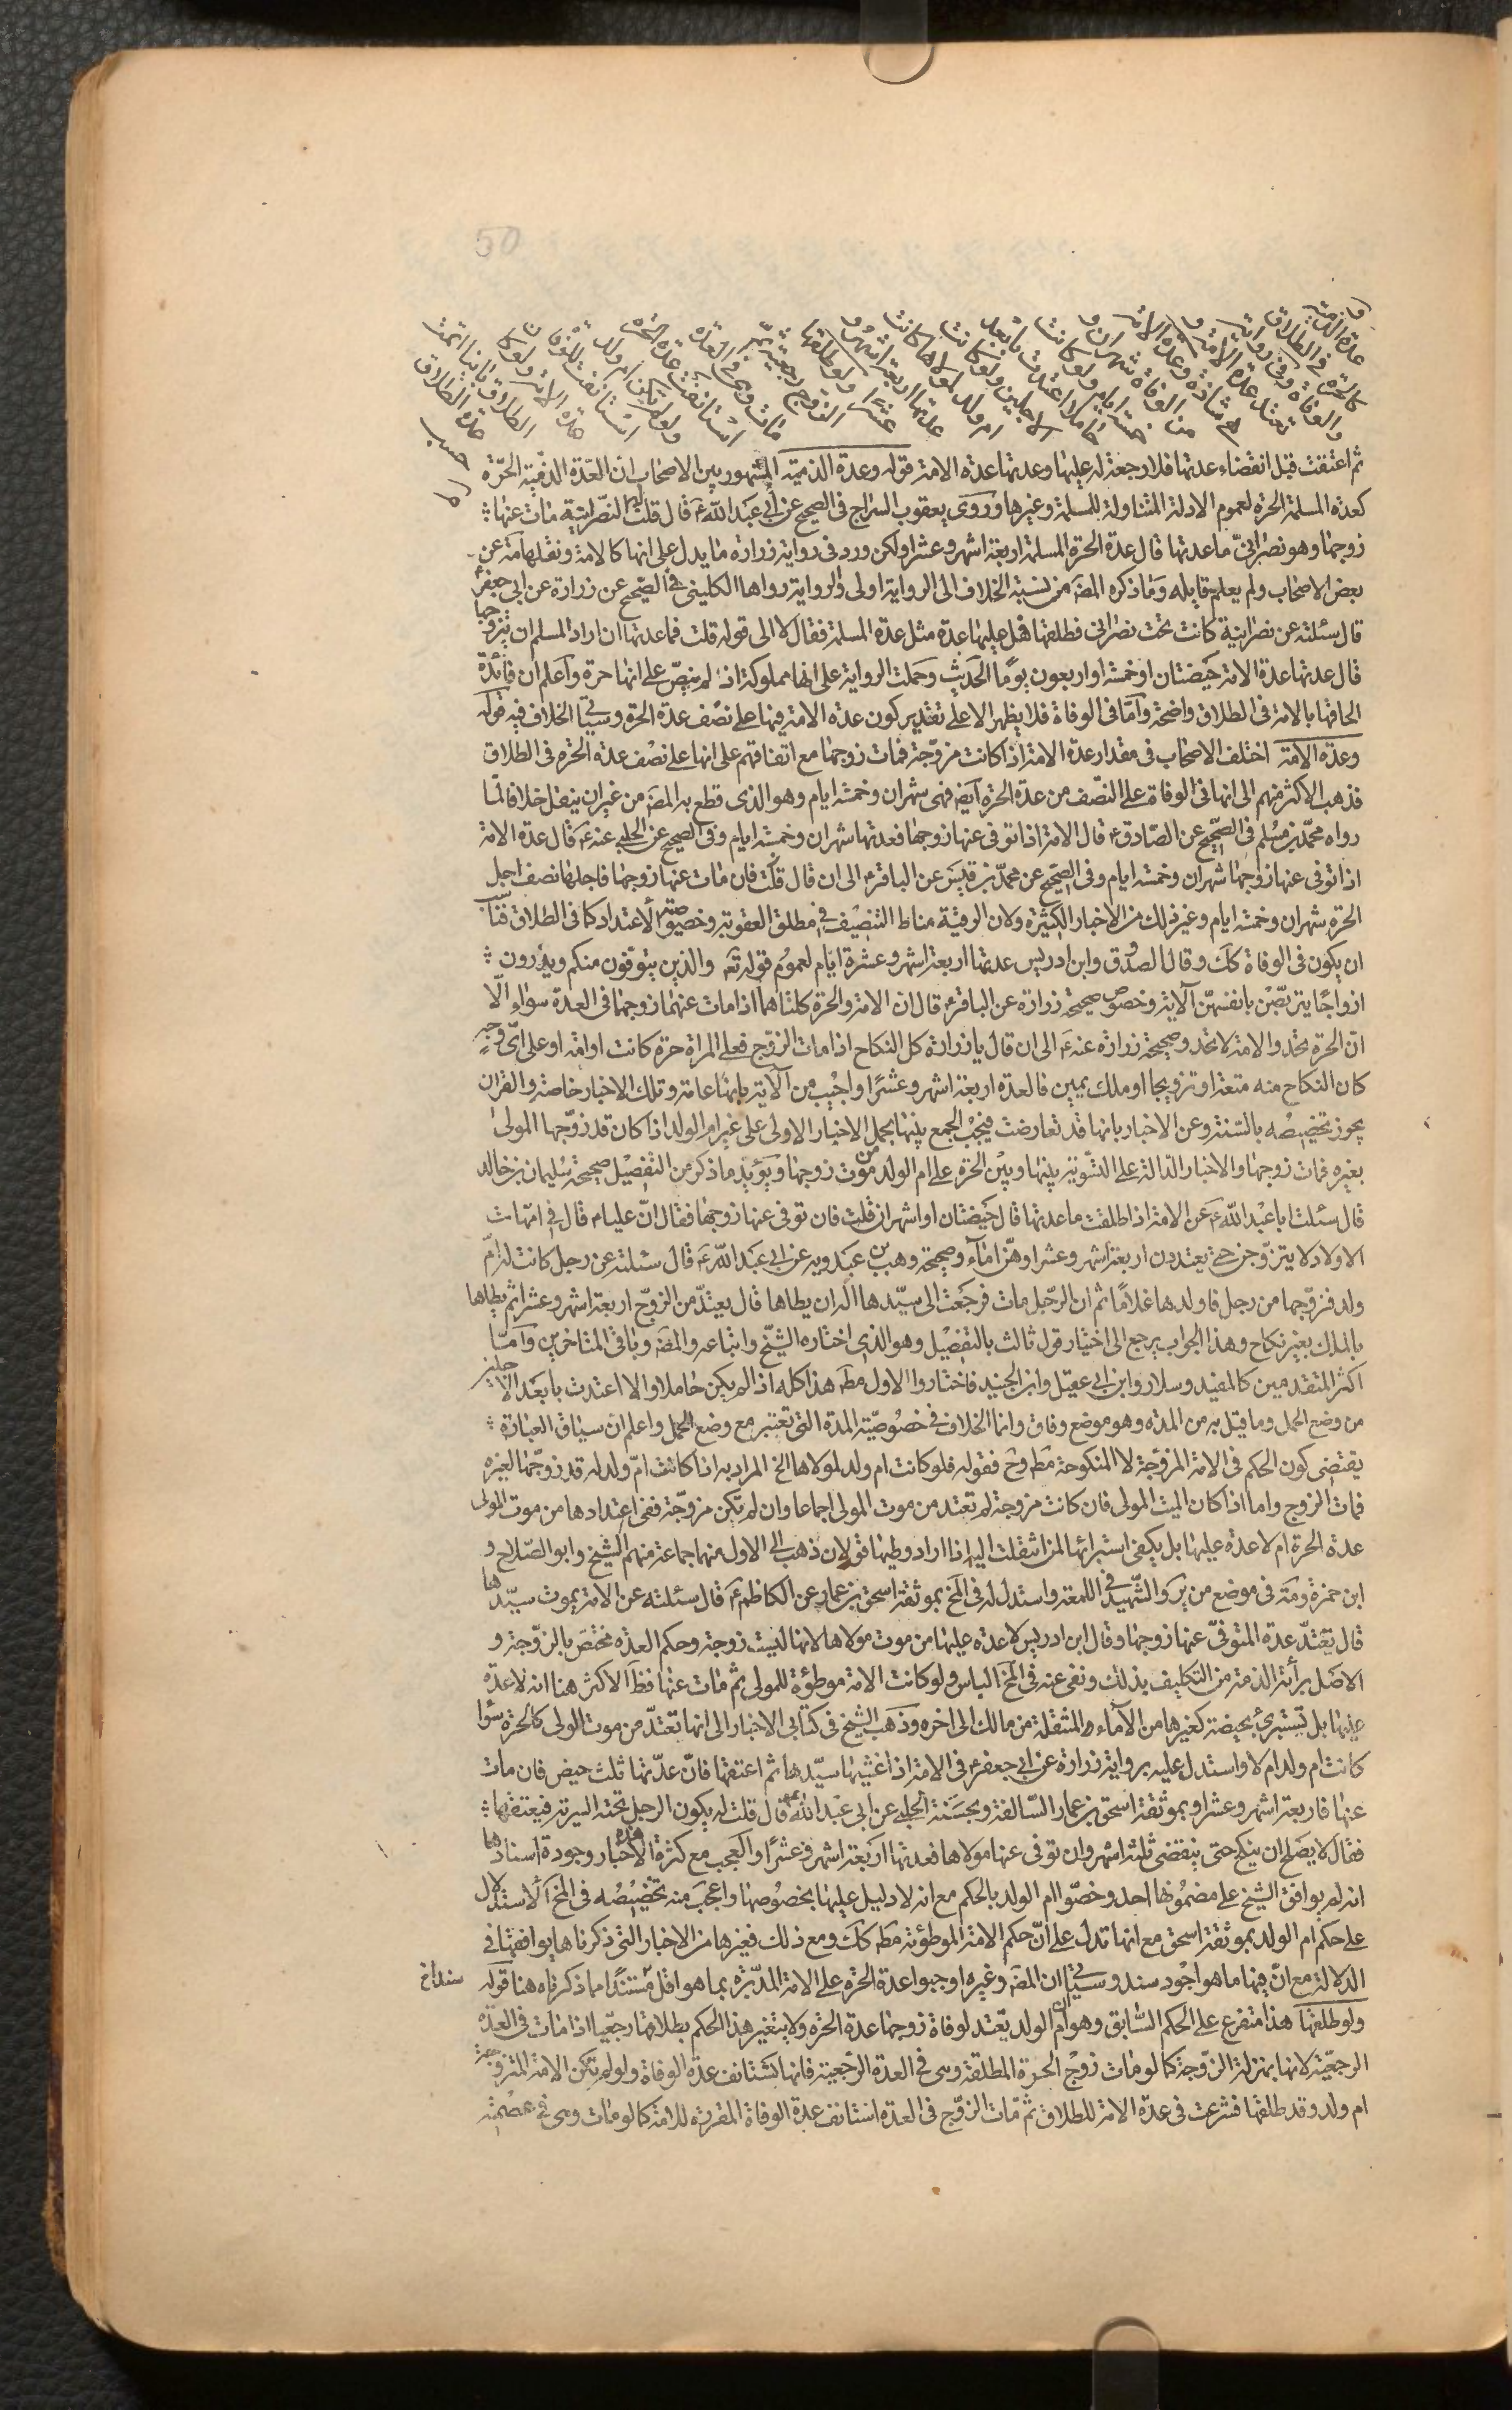 50
و
عدة الذمية
كالحرة في الطلاق
والوفاة وفي رواية
تعتد عدة الامة و
هي شاذة وعدة الامة
من الوفاة شهران و
خمسة ايام ولو كانت
حاملا اعتدت بابعد
الاجلين ولو كانت
ام ولد لمولاها كانت
عدتها اربعة اشهر و
عشرا ولو طلقها
الزوج رجعية ثم
مات وهي في العدة
استانفت عدة الحرة
ولو لم تكن ام ولد
استانفت للوفاة
عدة الامة ولو كان
الطلاق باينا اتمت
عدة الطلاق
حسب
ثم اعتقت قبل انقضاء عدتها فلا رجعة له عليها وعدتها عدة الامة قوله وعدة الذمية المشهور بين الاصحاب ان العدة الذمية الحرّة
كعدة المسلمة الحرة لعموم الادلة المتناولة للمسلمة وغيرها وروى يعقوب السراج في الصحيح عن أبي عبد الله ع قال قلت له النصرانية مات عنها
زوجها وهو نصراني ما عدتها قال عدة الحرة المسلمة اربعة اشهر وعشرا ولكن ورد في رواية زرارة ما يدل على انها كالامة ونقلها مة عن
بعض الاصحاب ولم يعلم قايله وما ذكره المصَ من نسبة الخلاف الى الرواية اولى والرواية رواها الكليني في الصّحيح عن زرارة عن ابي جعفر
قال سئلته عن نصرانية كانت تحت نصراني فطلقها هل عليها عدة مثل عدة المسلمة فقال لا الى قوله قلت فما عدتها ان اراد المسلم ان يتزوجها
قال عدتها عدة الامة حيضتان او خمسة واربعون يومًا الحديث وحملت الرواية على انها مملوكة اذ لم ينصّ على انها حرة واعلم ان فائدة
الحاقها بالامة في الطلاق واضحة وامّا في الوفاة فلا يظهر الا على تقدير كون عدة الامة فيها على نصف عدة الحرة وسيأتي الخلاف فيه قوله
وعدة الامة اختلف الاصحاب في مقدار عدة الامة اذا كانت مزوّجة فمات زوجها مع اتفاقهم على انها على نصف عدة الحرة في الطلاق
فذهب الاكثر منهم الى انها في الوفاة على النصف من عدة الحرة ايضَ فهي شهران وخمسة ايام وهو الذي قطع به المصَ من غير ان ينقل خلافا لما
رواه محمّد بن مسلم في الصّحيح عن الصّادق ع قال الامة اذا توفى عنها زوجها فعدتها شهران وخمسة ايام وفي الصحيح عن الحلبي عنه ع قال عدة الامة
اذا توفى عنها زوجها شهران وخمسة ايام وفي الصّحيح عن محمّد بن قيس عن الباقر ع الى ان قال قلت فان مات عنها زوجها فاجلها نصف اجل
الحرة شهران وخمسة ايام وغير ذلك من الاخبار الكثيرة ولان الرقية مناط التنصيف في مطلق العقوبة وخصوصية الاعتداد كما في الطلاق فناسب
ان يكون في الوفاة كك وقال الصدوق وابن ادريس عدتها اربعة اشهر وعشرة ايام لعموم قوله تع والذين يتوفون منكم ويذرون
ازواجًا يتربّصن بانفسهنّ الآية وخصوص صحيحة زرارة عن الباقر ع قال ان الامة والحرة كلتاهما اذا مات عنهما زوجهما في العدة سواء الّا
انّ الحرة تحد والامة لا تحد وصحيحة زرارة عنه ع الى ان قال يا زرارة كل النكاح اذا مات الزوج فعلى المراة حرة كانت او امة او على اىّ وجهٍ
كان النكاح منه متعة او تزويجا او ملك يمين فالعدة اربعة اشهر وعشرًا واجيب من الآية بانها عامة وتلك الاخبار خاصة والقران
يجوز تخصيصه بالسّنة وعن الاخبار بانها قد تعارضت فيجب الجمع بينها بحمل الاخبار الاولى على غير ام الولد اذا كان قد زوّجها المولى
بغيره فمات زوجها والاخبار الدّالة على التسوية بينها وبين الحرة على ام الولد من موت زوجها ويؤيد ما ذكر من التفصيل صحيحة سليمان بن خالد
قال سئلت ابا عبد الله ع عن الامة اذا طلقت ما عدتها قال حيضتان او شهران قلت فان توفى عنها زوجها فقال انّ عليا ع قال في امهات
الاولاد لا يتزوجن حتى يعتددن اربعة اشهر وعشرا وهنّ اماء وصحيحة وهب بن عبد ربه عن ابي عبد الله ع قال سئلته عن رجل كانت له امّ
ولد فزوّجها من رجل فاولدها غلامًا ثم ان الرّجل مات فرجعت الى سيّدها اله ان يطاها قال يعتدّ من الزوج اربعة اشهر وعشرا ثم يطاها
بالملك بغير نكاح وهذا الجواب يرجع الى اختيار قول ثالث بالتفصيل وهو الذي اختاره الشيخ واتباعه والمصَ وباقي المتاخرين وامّا
اكثر المتقدمين كالمفيد وسلار وابن ابي عقيل وابن الجنيد فاختاروا الاول مطَ هذا كله اذا لم يكن حاملا والا اعتدت بابعد الاجلين
من وضع الحمل وما قيل به من المدة وهو موضع وفاق وانما الخلاف في خصوصيّة المدة التي تعتبر مع وضع الحمل واعلم ان سياق العبارة
يقتضى كون الحكم في الامة المزوّجة لا المنكوحة مطَ وح فقوله فلو كانت ام ولد لمولاها الخ المراد به اذا كانت امّ ولد له قد زوّجها لغيره
فمات الزوج واما اذا كان الميت المولى فان كانت مزوجة لم تعتد من موت المولى اجماعا وان لم تكن مزوّجة ففى اعتدادها من موت المولى
عدة الحرة ام لا عدة عليها بل يكفى استبرائها لمن انتقلت اليه اذا اراد وطيها قولان ذهب الى الاول منهما جماعة منهم الشيخ وابو الصّلاح و
ابن حمزة ومة في موضع من ير والشّهيد في اللمعة واستدل له في المخ بموثقة اسحق بن عمار عن الكاظم ع قال سئلته عن الامة يموت سيّدها
قال تعتدّ عدة المتوفىّ عنها زوجها وقال ابن ادريس لا عدة عليها من موت مولاها لانها ليست زوجة وحكم العدة مختصّ بالزوّجة و
الاصل برأئة الذمة من التكليف بذلك ونفى عنه في المخ الباس ولو كانت الامة موطؤة للمولى ثم مات عنها فظَ الاكثر هنا انه لا عدة
عليها بل تستبرئ بحيضة كغيرها من الآماء المنتقلة من مالك الى اخره وذهب الشيخ في كتابى الاخبار الى انها تعتدّ من موت المولى كالحرة سوا
كانت ام ولد ام لا واستدل عليه برواية زرارة عن ابي جعفر ع في الامة اذا غشيها سيّدها ثم اعتقها فانّ عدّتها ثلث حيض فان مات
عنها فاربعة اشهر وعشرا وبموثقة اسحق بن عمار السّالفة وبحسنة الحلبي عن ابي عبد الله ع قال قلت له يكون الرجل تحته السرية فيعتقها
فقال لا يصلح ان ينكح حتى ينقضى ثلثة اشهر وان توفى عنها مولاها فعدتها اربعة اشهر وعشرًا والعجب مع كثرة هذه الاخبار وجودة اسنادها
انه لم يوافق الشيخ على مضمونها احد وخصّوا ام الولد بالحكم مع انه لا دليل عليها بخصوصها واعجب منه تخصيصه في المخ الاستدلال
على حكم ام الولد بموثقة اسحق مع انها تدل على انّ حكم الامة الموطؤئة مطَ كك ومع ذلك فغيرها من الاخبار التي ذكرناها يوافقها في
الدلالة مع انّ فيها ما هو اجود سند وسيأتي ان المصَ وغيره اوجبوا عدة الحرة على الامة المدبّرة بما هو اقل مستندًا مما ذكرناه هنا قوله
سندا خ
ولو طلقها هذا متفرع على الحكم السّابق وهو ان ام الولد يعتد لوفاة زوجها عدة الحرة ولا يتغير هذا الحكم بطلاقها رجعيا اذا مات في العدة
الرجعيّة لانها بمنزلة الزّوجة كما لو مات زوج الحرة المطلقة وهى في العدة الرّجعية فانها تستانف عدة الوفاة ولو لم تكن الامة المتزوجة
ام ولد وقد طلقها فشرعت في عدة الامة للطلاق ثم مات الزوّج في العدة استانف عدة الوفاة المقررة للامة كما لو مات وهى في عصمته